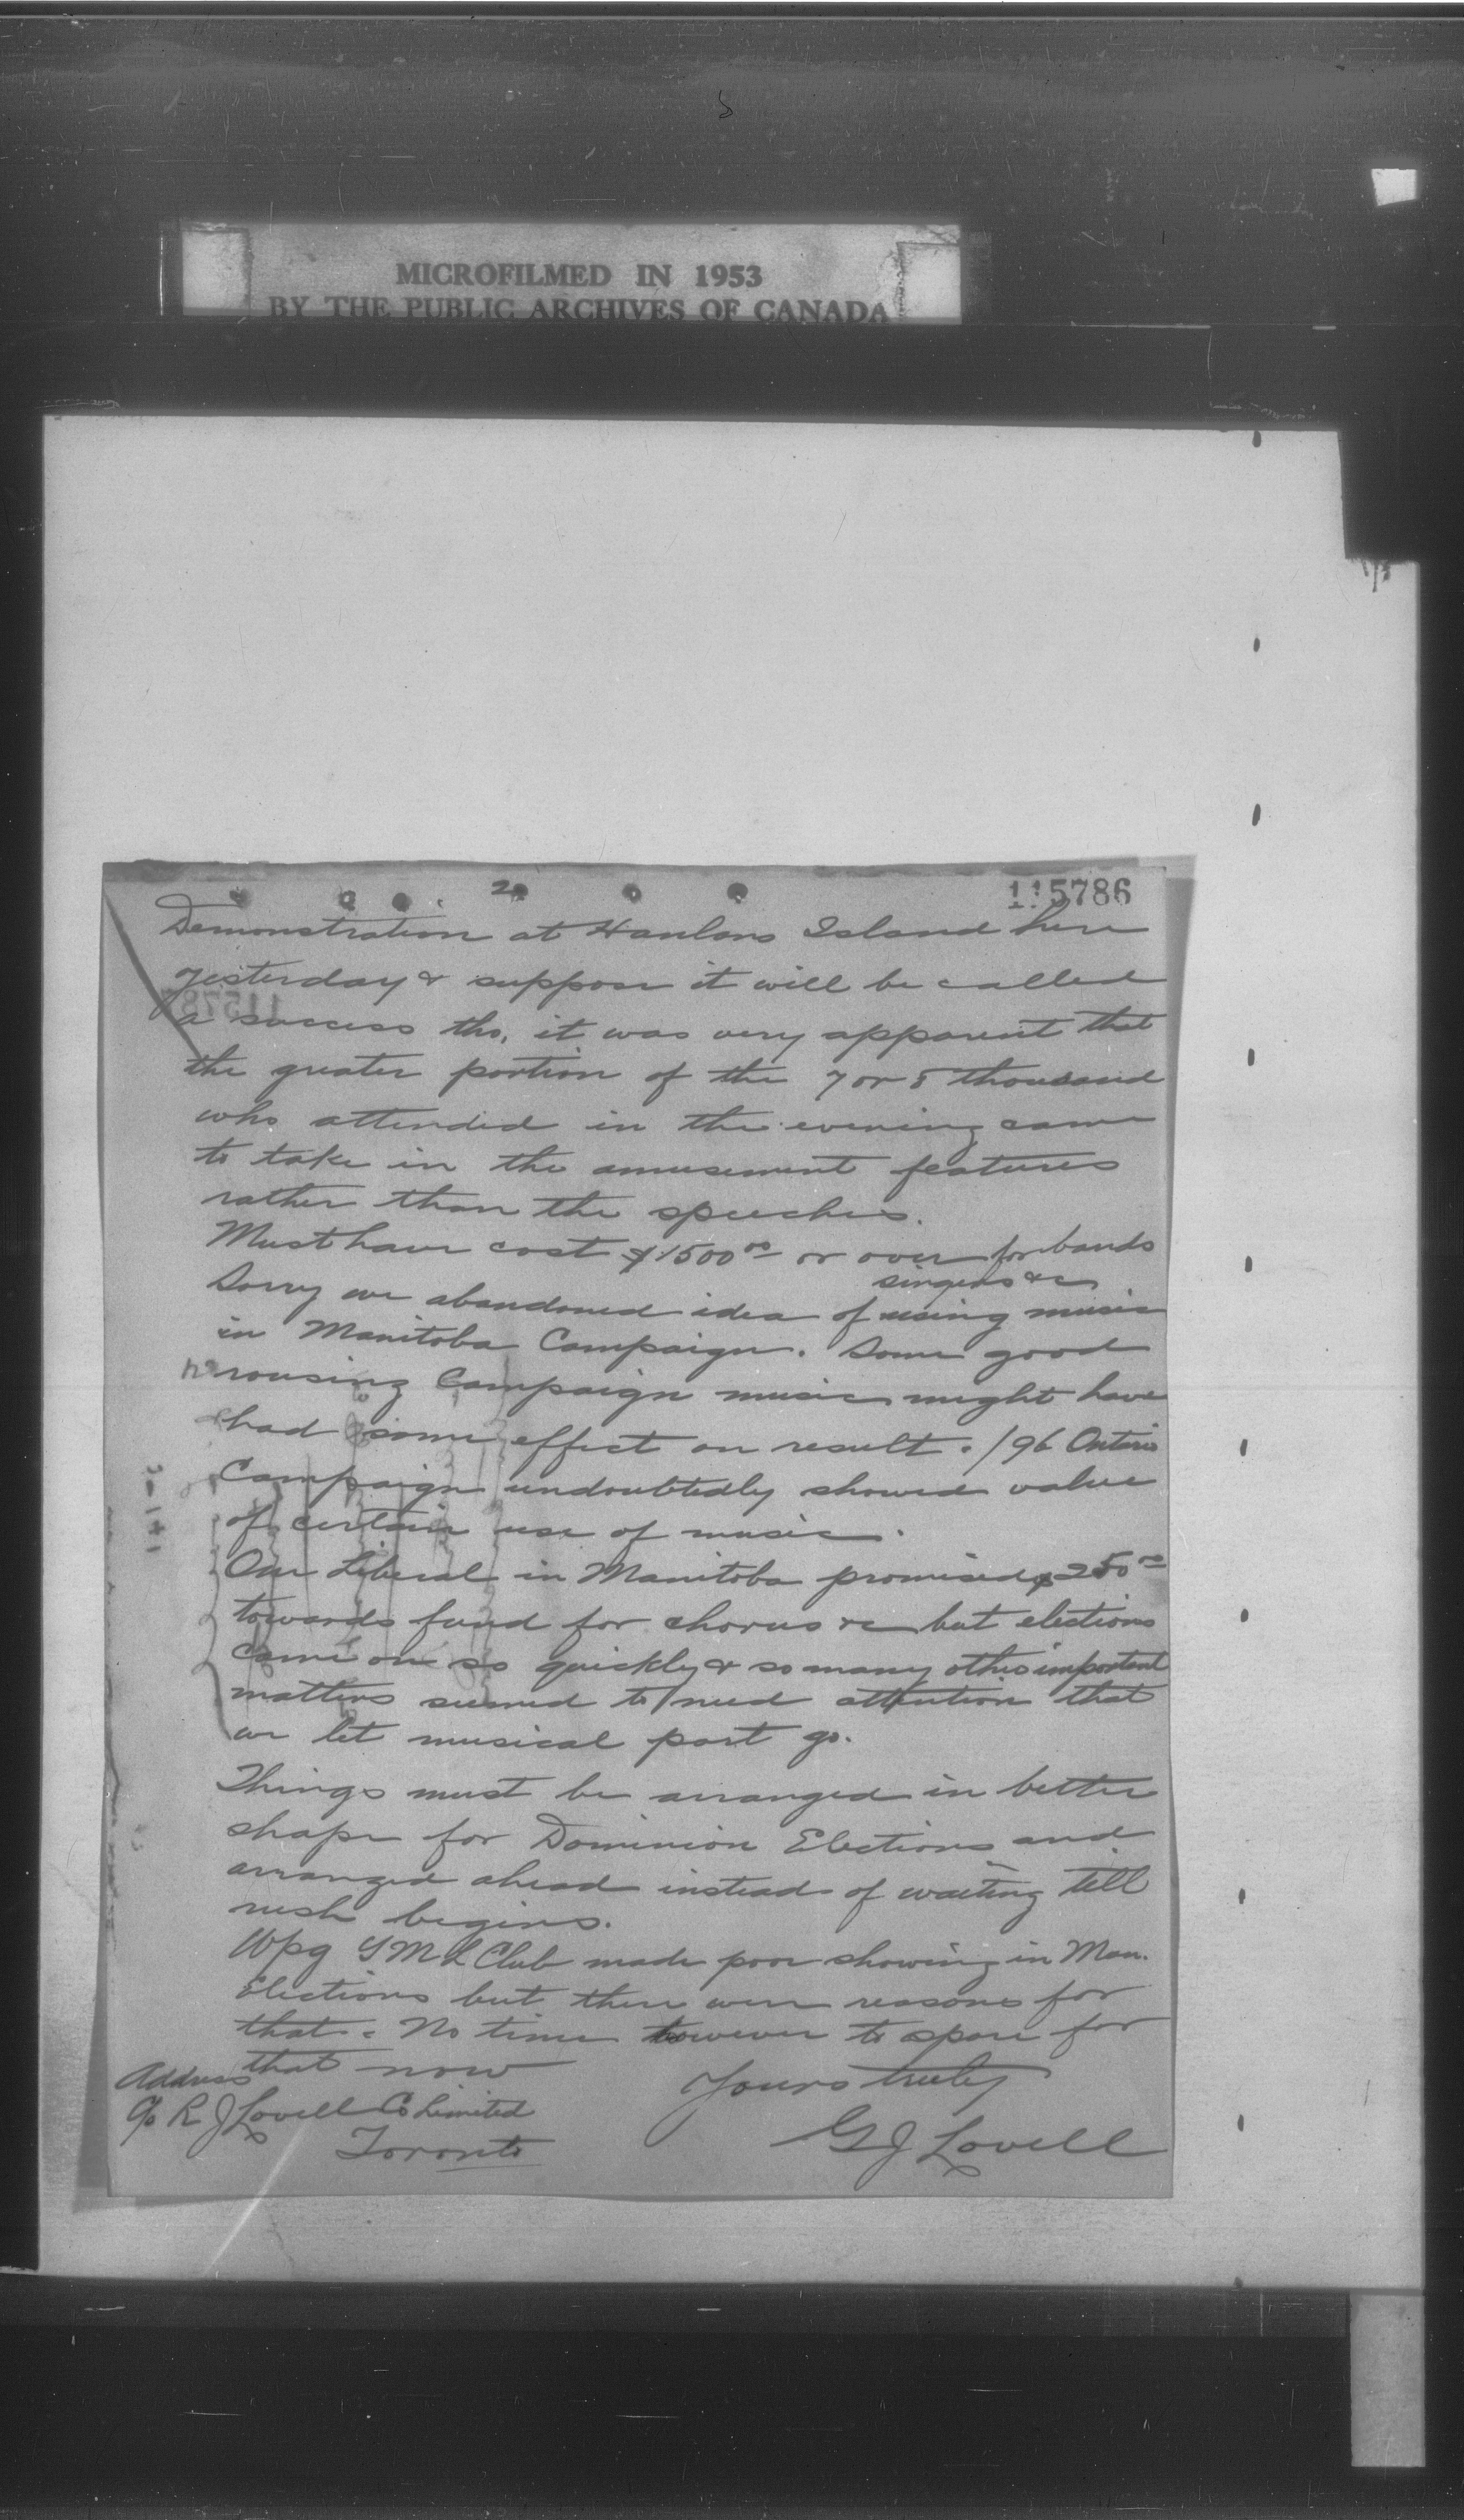 MICROFILMED IN 1953
BY THE PUBLIC ARCHIVES OF CANADA
2
115786
Demonstration at Hanlans Island here
yesterday & suppose it will be called
a success tho, it was very apparent that
the greater portion of the 7 or 8 thousand
who attended in the evening came
to take in the amusement features
rather than the speeches.
Must have cost $1500 00 or over for bands
singers &c
Sorry we abandoned idea of using music
in Manitoba Campaign. Some good
rousing Campaign music might have
had some effect on result. /96 Ontario
Campaign undoubtedly showed value
of certain use of music.
One Liberal in Manitoba promised $250 00
towards fund for chorus &c but elections
came on so quickly & so many other important
matters seemed to need attention that
we let musical part go.
Things must be arranged in better
shape for Dominion Elections and
arranged ahead instead of waiting till
rush begins.
Wpg Y M L Club made poor showing in Man.
Elections but there were reasons for
that. No time however to spare for
that now
Yours truly
G J Lovell
Address
c/o R J Lovell Co Limited
Toronto